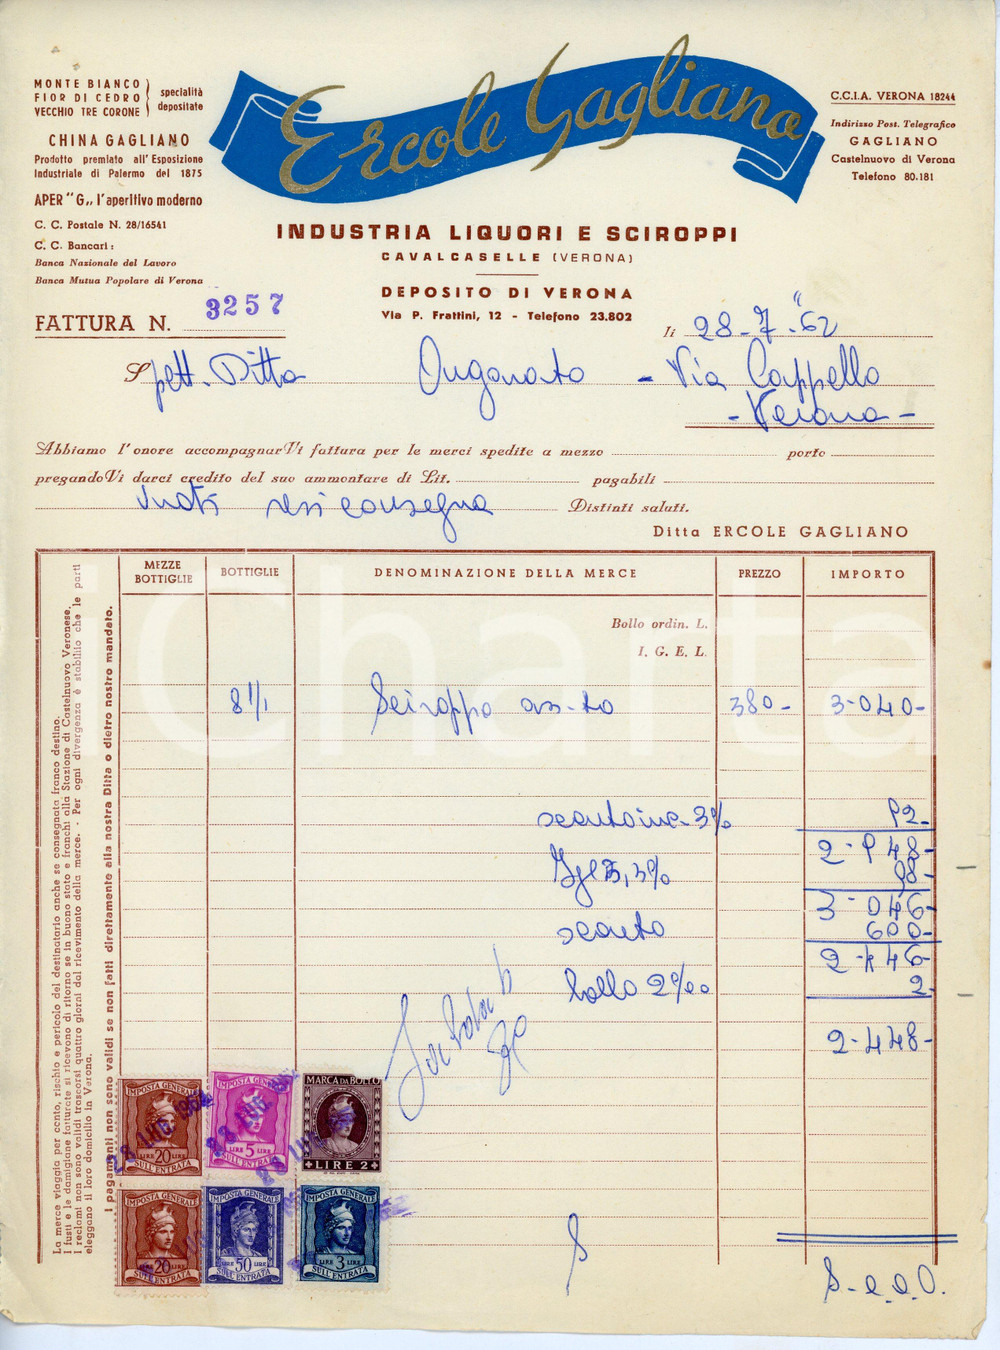 MONTE BIANCO
FIOR DI CEDRO
VECCHIO TRE CORONE
specialità
depositate
CHINA GAGLIANO
Prodotto premiato all' Esposizione
Industriale di Palermo del 1875
APER "G„ l'aperitivo moderno
C. C. Postale N. 28/16541
C. C. Bancari:
Banca Nazionale del Lavoro
Banca Mutua Popolare di Verona
Ercole Gagliano
INDUSTRIA LIQUORI E SCIROPPI
CAVALCASELLE (VERONA)
DEPOSITO DI VERONA
Via P. Frattini, 12 - Telefono 23.802
C.C.I.A. VERONA 18244
Indirizzo Post. Telegrafico
GAGLIANO
Castelnuovo di Verona
Telefono 80.181
FATTURA N. 3257
li 28-7-62
Spett. Ditta - Via Cappello
- Verona -
Abbiamo l'onore accompagnarVi fattura per le merci spedite a mezzo porto
pregandoVi darci credito del suo ammontare di Lit. pagabili
consegna Distinti saluti.
Ditta ERCOLE GAGLIANO
MEZZE BOTTIGLIE BOTTIGLIE DENOMINAZIONE DELLA MERCE PREZZO IMPORTO
Bollo ordin. L.
I. G. E. L.
8 1/1 Sciroppo 380- 3-040-
3% 92-
2-948-
Ige 3,3% 98-
3-046-
sconto 600-
2-446-
bollo 2‰ 2-
2-448-
S. e. e. O.
La merce viaggia per conto, rischio e pericolo del destinatario anche se consegnata franco destino.
I fusti e le damigiane fatturate si ricevono di ritorno se in buono stato e franchi alla Stazione di Castelnuovo Veronese.
I reclami non sono validi trascorsi quattro giorni dal ricevimento della merce. - Per ogni divergenza è stabilito che le parti
eleggano il loro domicilio in Verona.
I pagamenti non sono validi se non fatti direttamente alla nostra Ditta o dietro nostro mandato.
IMPOSTA GENERALE
LIRE 20 LIRE
SULL'ENTRATA
IMPOSTA GENERALE
LIRE 5 LIRE
SULL'ENTRATA
MARCA DA BOLLO
LIRE 2
IMPOSTA GENERALE
LIRE 20 LIRE
SULL'ENTRATA
IMPOSTA GENERALE
LIRE 50 LIRE
SULL'ENTRATA
IMPOSTA GENERALE
LIRE 3 LIRE
SULL'ENTRATA
28 LUG. 1962
iCharta